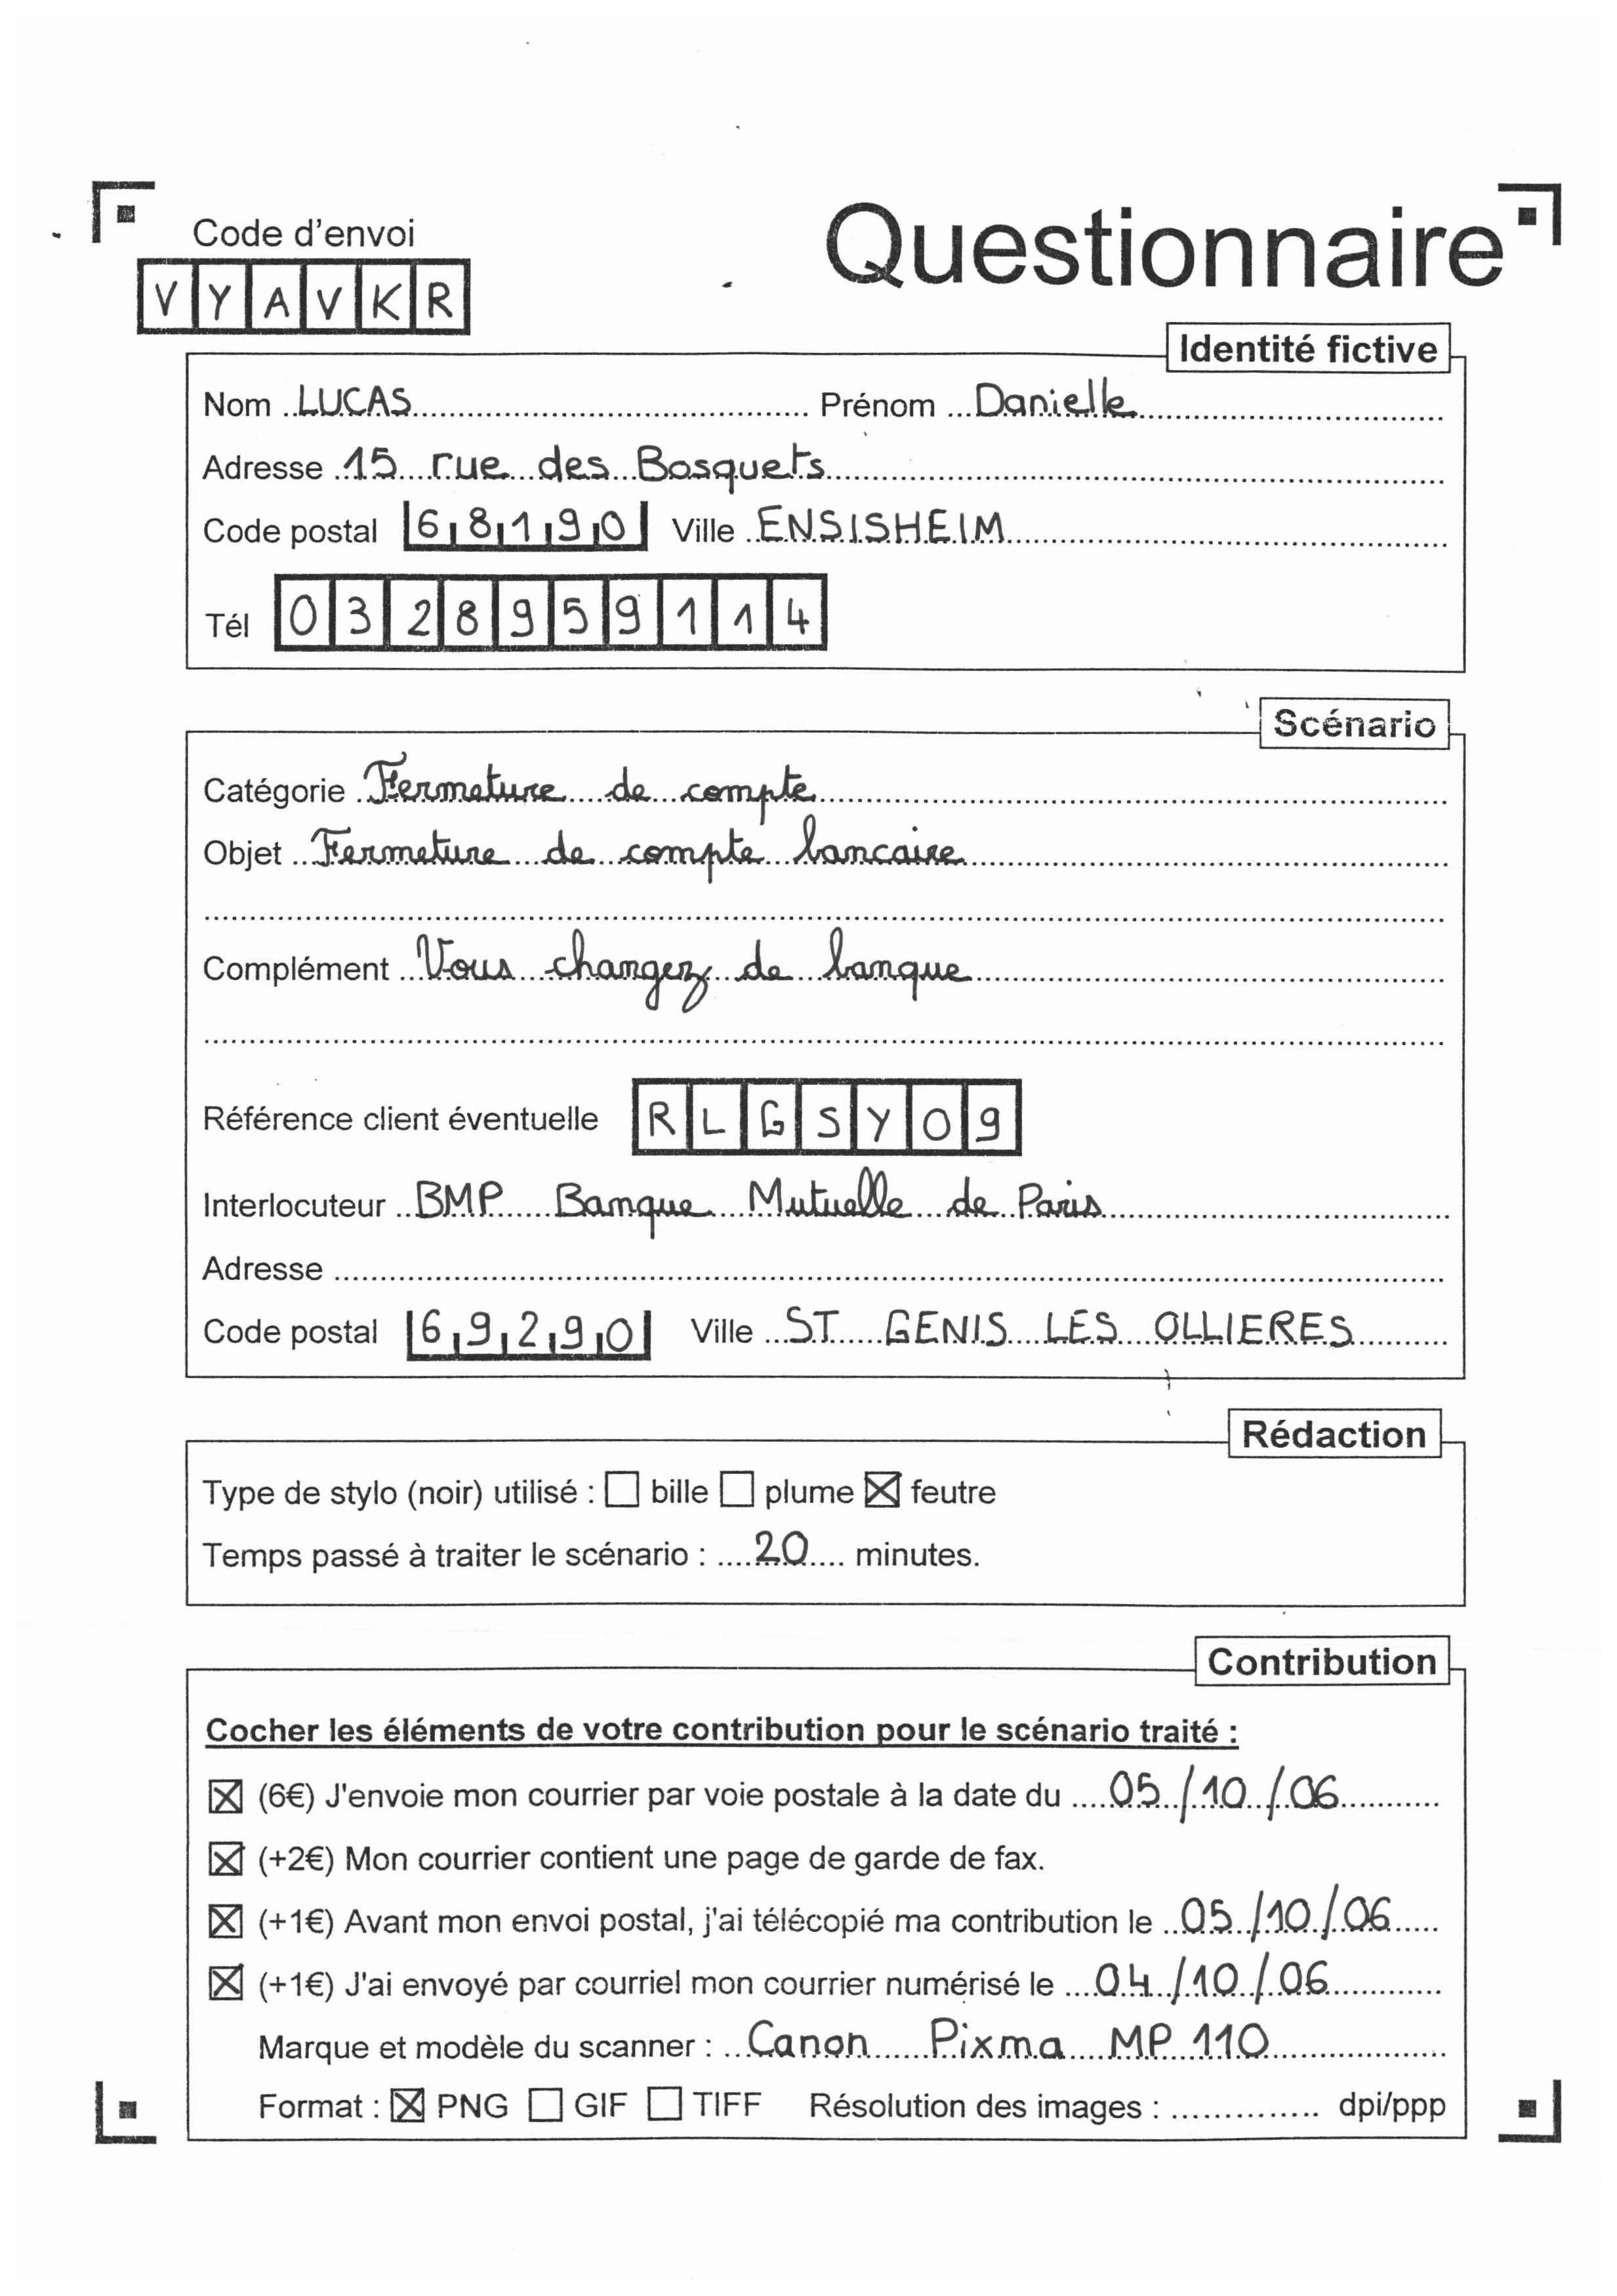 Code d'envoi
Questionnaire
VYAVKR
Identité fictive
Nom LUCAS Prénom Danielle
Adresse 15 rue des Bosquets
Code postal 68190 Ville ENSISHEIM
Tél 0328959114
Scénario
Catégorie Fermeture de compte
Objet Fermeture de compte bancaire
Complément Vous changez de banque
Référence client éventuelle RLGSY09
Interlocuteur BMP Banque Mutuelle de Paris
Adresse
Code postal 69290 Ville ST GENIS LES OLLIERES
Rédaction
Type de stylo (noir) utilisé : ☐ bille ☐ plume ☒ feutre
Temps passé à traiter le scénario : 20 minutes.
Contribution
Cocher les éléments de votre contribution pour le scénario traité :
☒ (6€) J'envoie mon courrier par voie postale à la date du 05/10/06
☒ (+2€) Mon courrier contient une page de garde de fax.
☒ (+1€) Avant mon envoi postal, j'ai télécopié ma contribution le 05/10/06
☒ (+1€) J'ai envoyé par courriel mon courrier numérisé le 04/10/06
Marque et modèle du scanner : Canon Pixma MP 110
Format : ☒ PNG ☐ GIF ☐ TIFF Résolution des images : .............. dpi/ppp